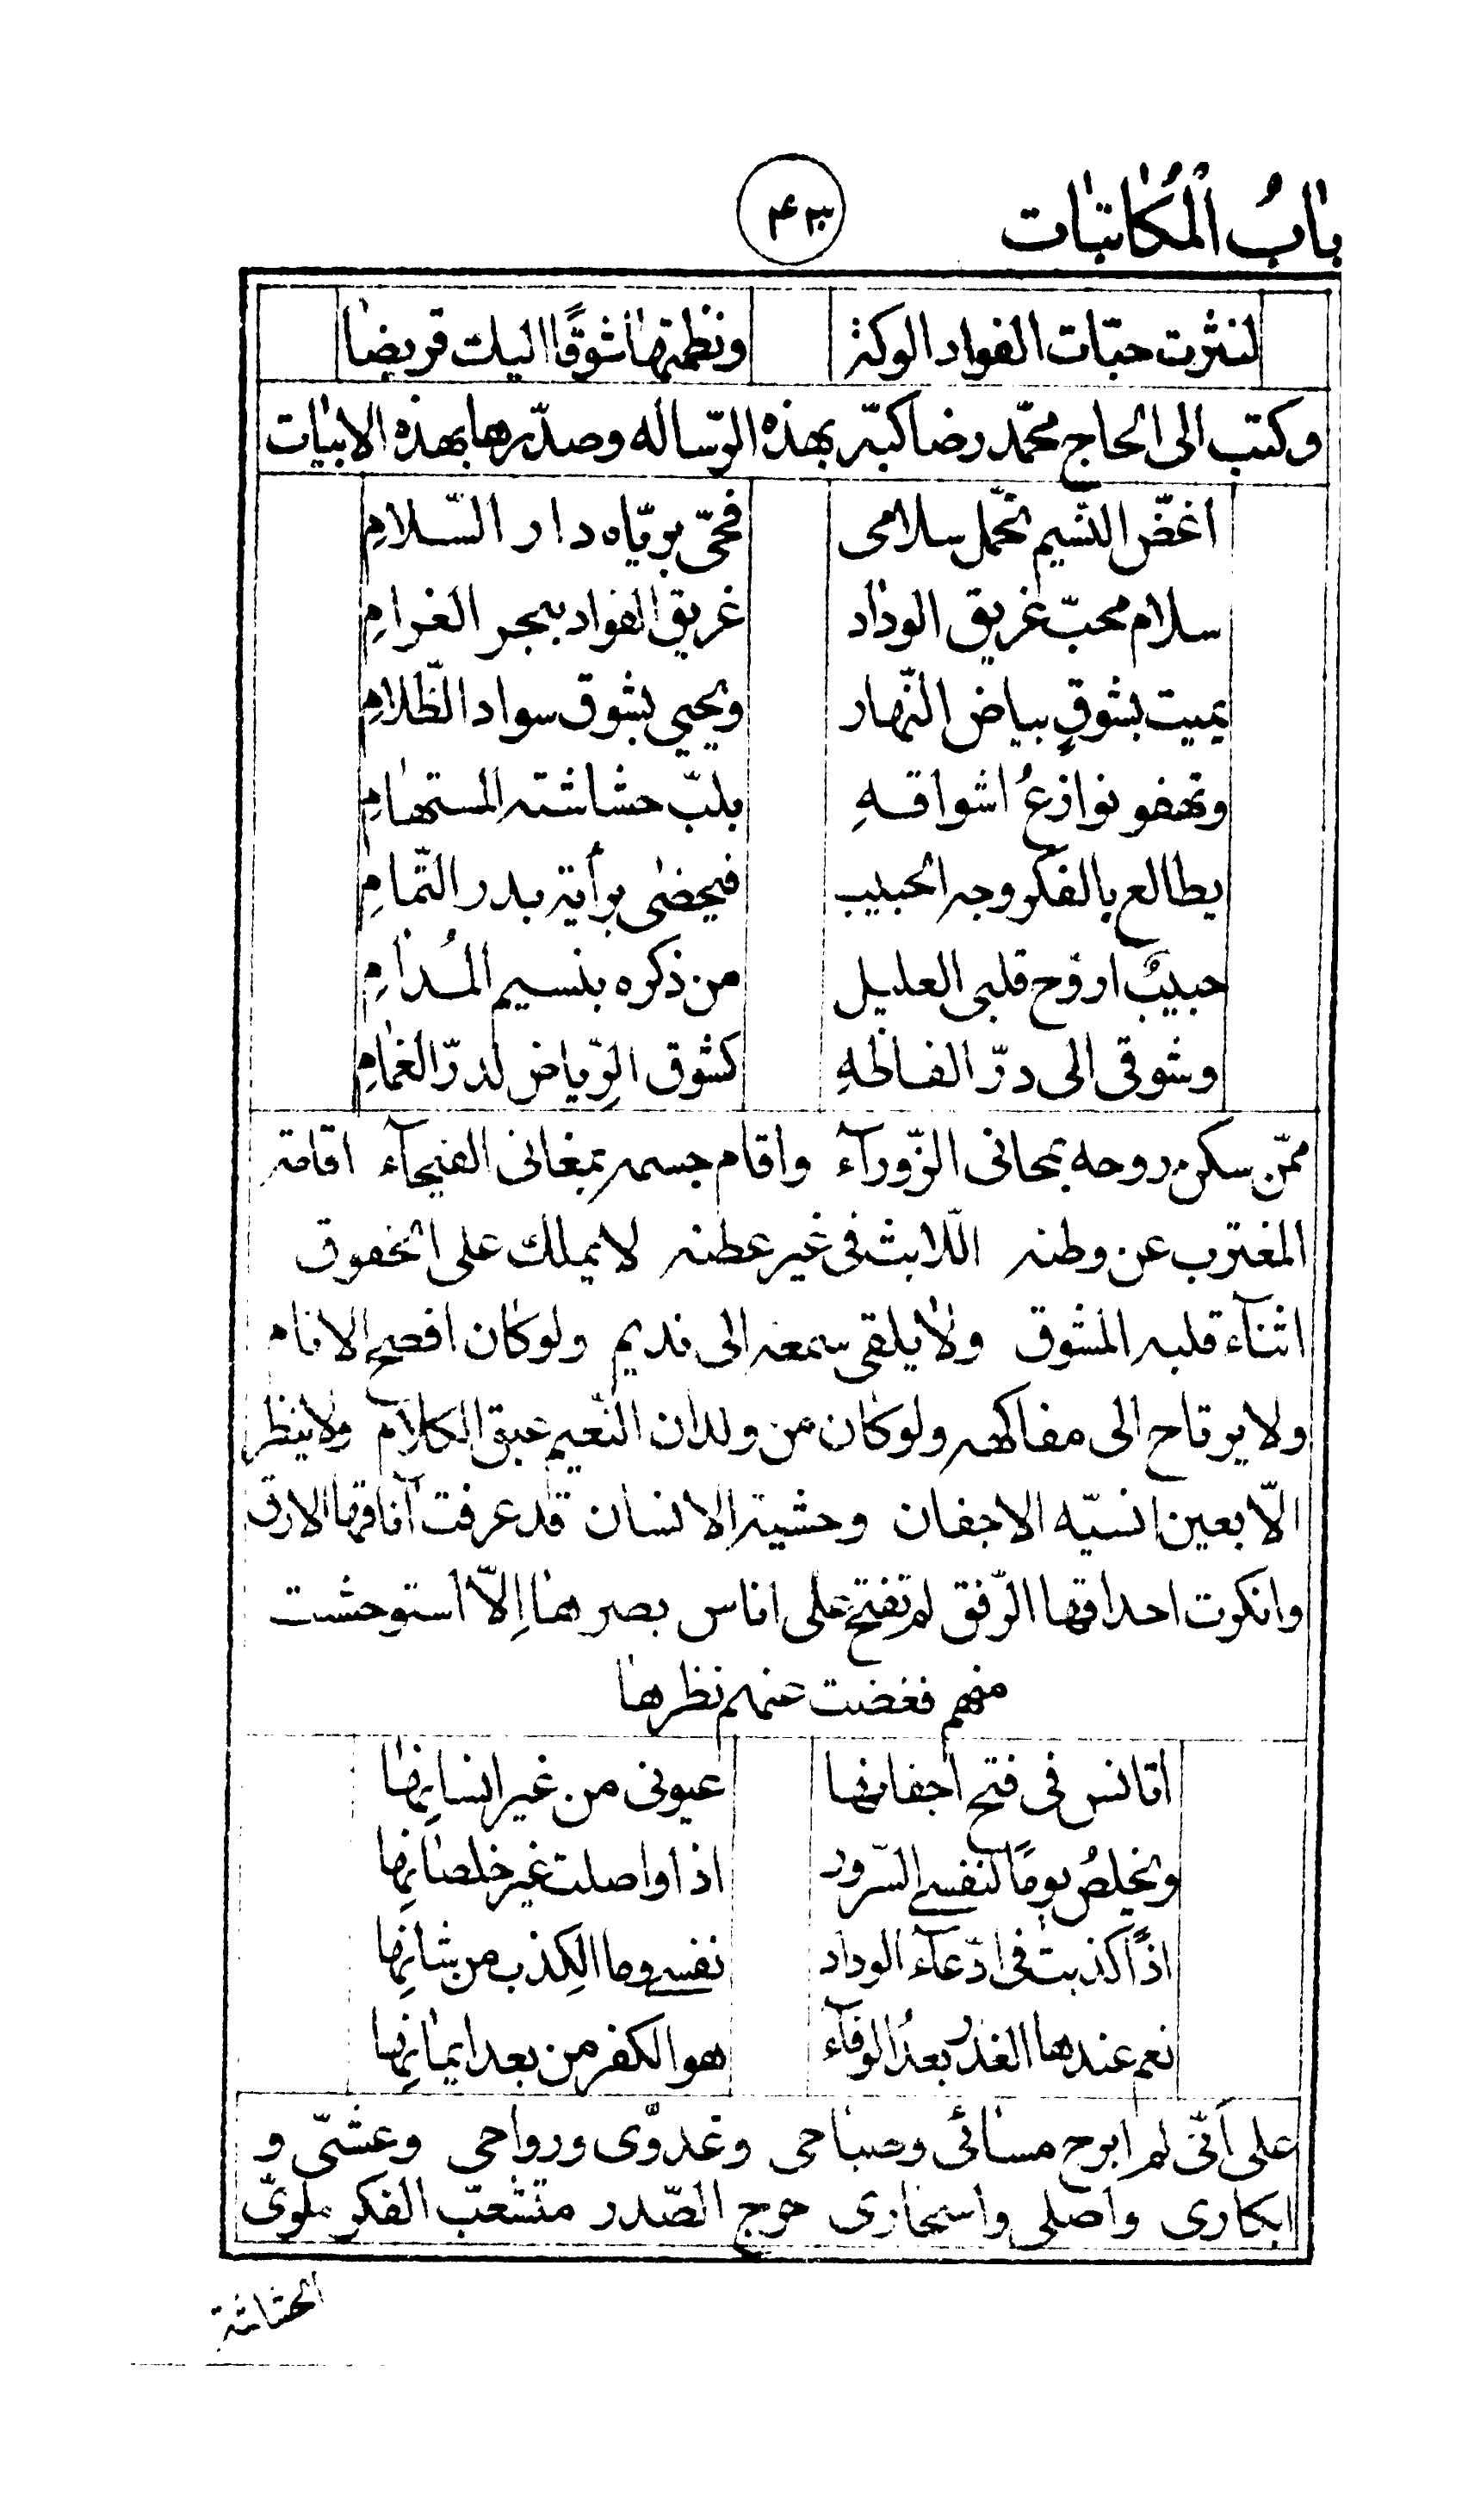 بٰابُ الْمُكٰاتبٰات
۴۳
لنثرت حبّات الفواد الوكة ونظمتها شوقًا اليك قريضا
وكتب الى الحاج محمّد رضا كبّه بهذه الرّساله وصدّرها بهذه الابيات
اغضّ النّسيم تحمّل سلامى فحىّ بريّاه دار السّلامِ
سلام محبّ غريق الوداد غريق الفواد ببحر الغرامِ
يميت بشوقٍ بياض النّهار ويحيي بشوق سواد الظّلامِ
وتهفو نوازعُ اشواقهِ بلبّ حشاشته المستهامِ
يطالع بالفكر وجه الحبيب فيحضى برأية بدر التّمامِ
حبيبٌ اروّح قلبى العليل من ذكره بنسيم المُدامِ
وشوقى الى درّ الفاظهِ كشوق الرّياض لدرّ الغمامِ
ممّن سكن روحه بمحانى الزّورآء واقام جسمه بمغانى الفيحآء اقامة
المغترب عن وطنه اللّابث فى غير عطنه لا يملك على الخفوق
اثنآء قلبه المشوق ولا يلقى سمعه الى نديم ولو كان افصح الانام
ولا يرتاح الى مفاكهه ولو كان من ولدان النّعيم عبق الكلام ولا ينظر
الّا بعين انسيّه الاجفان وحشية الانسان قد عرفت آناقها الارق
وانكرت احداقها الرّفق لم تفتح على اناس بصرها اِلّا استوحشت
منهم فغضت عنهم نظرها
اتانس فى فتح اجفانها عيونى من غير انسانِها
ويخلصُ يومًا لنفسى السّرور اذا واصلت غير خلصانِها
اذًا كذبت فى ادّعآء الوداد نفسى وما الكِذب من شانِها
نعم عندها الغدر بعدُ الوفآء هو الكفر من بعد ايمانِها
على انّى لم ابرح مسائى وصباحى وغدوّى ورواحى وعشّى و
ابكارى واصلى واسحارى حرج الصّدر متشعّب الفكر ملوىّ
الحشاشة